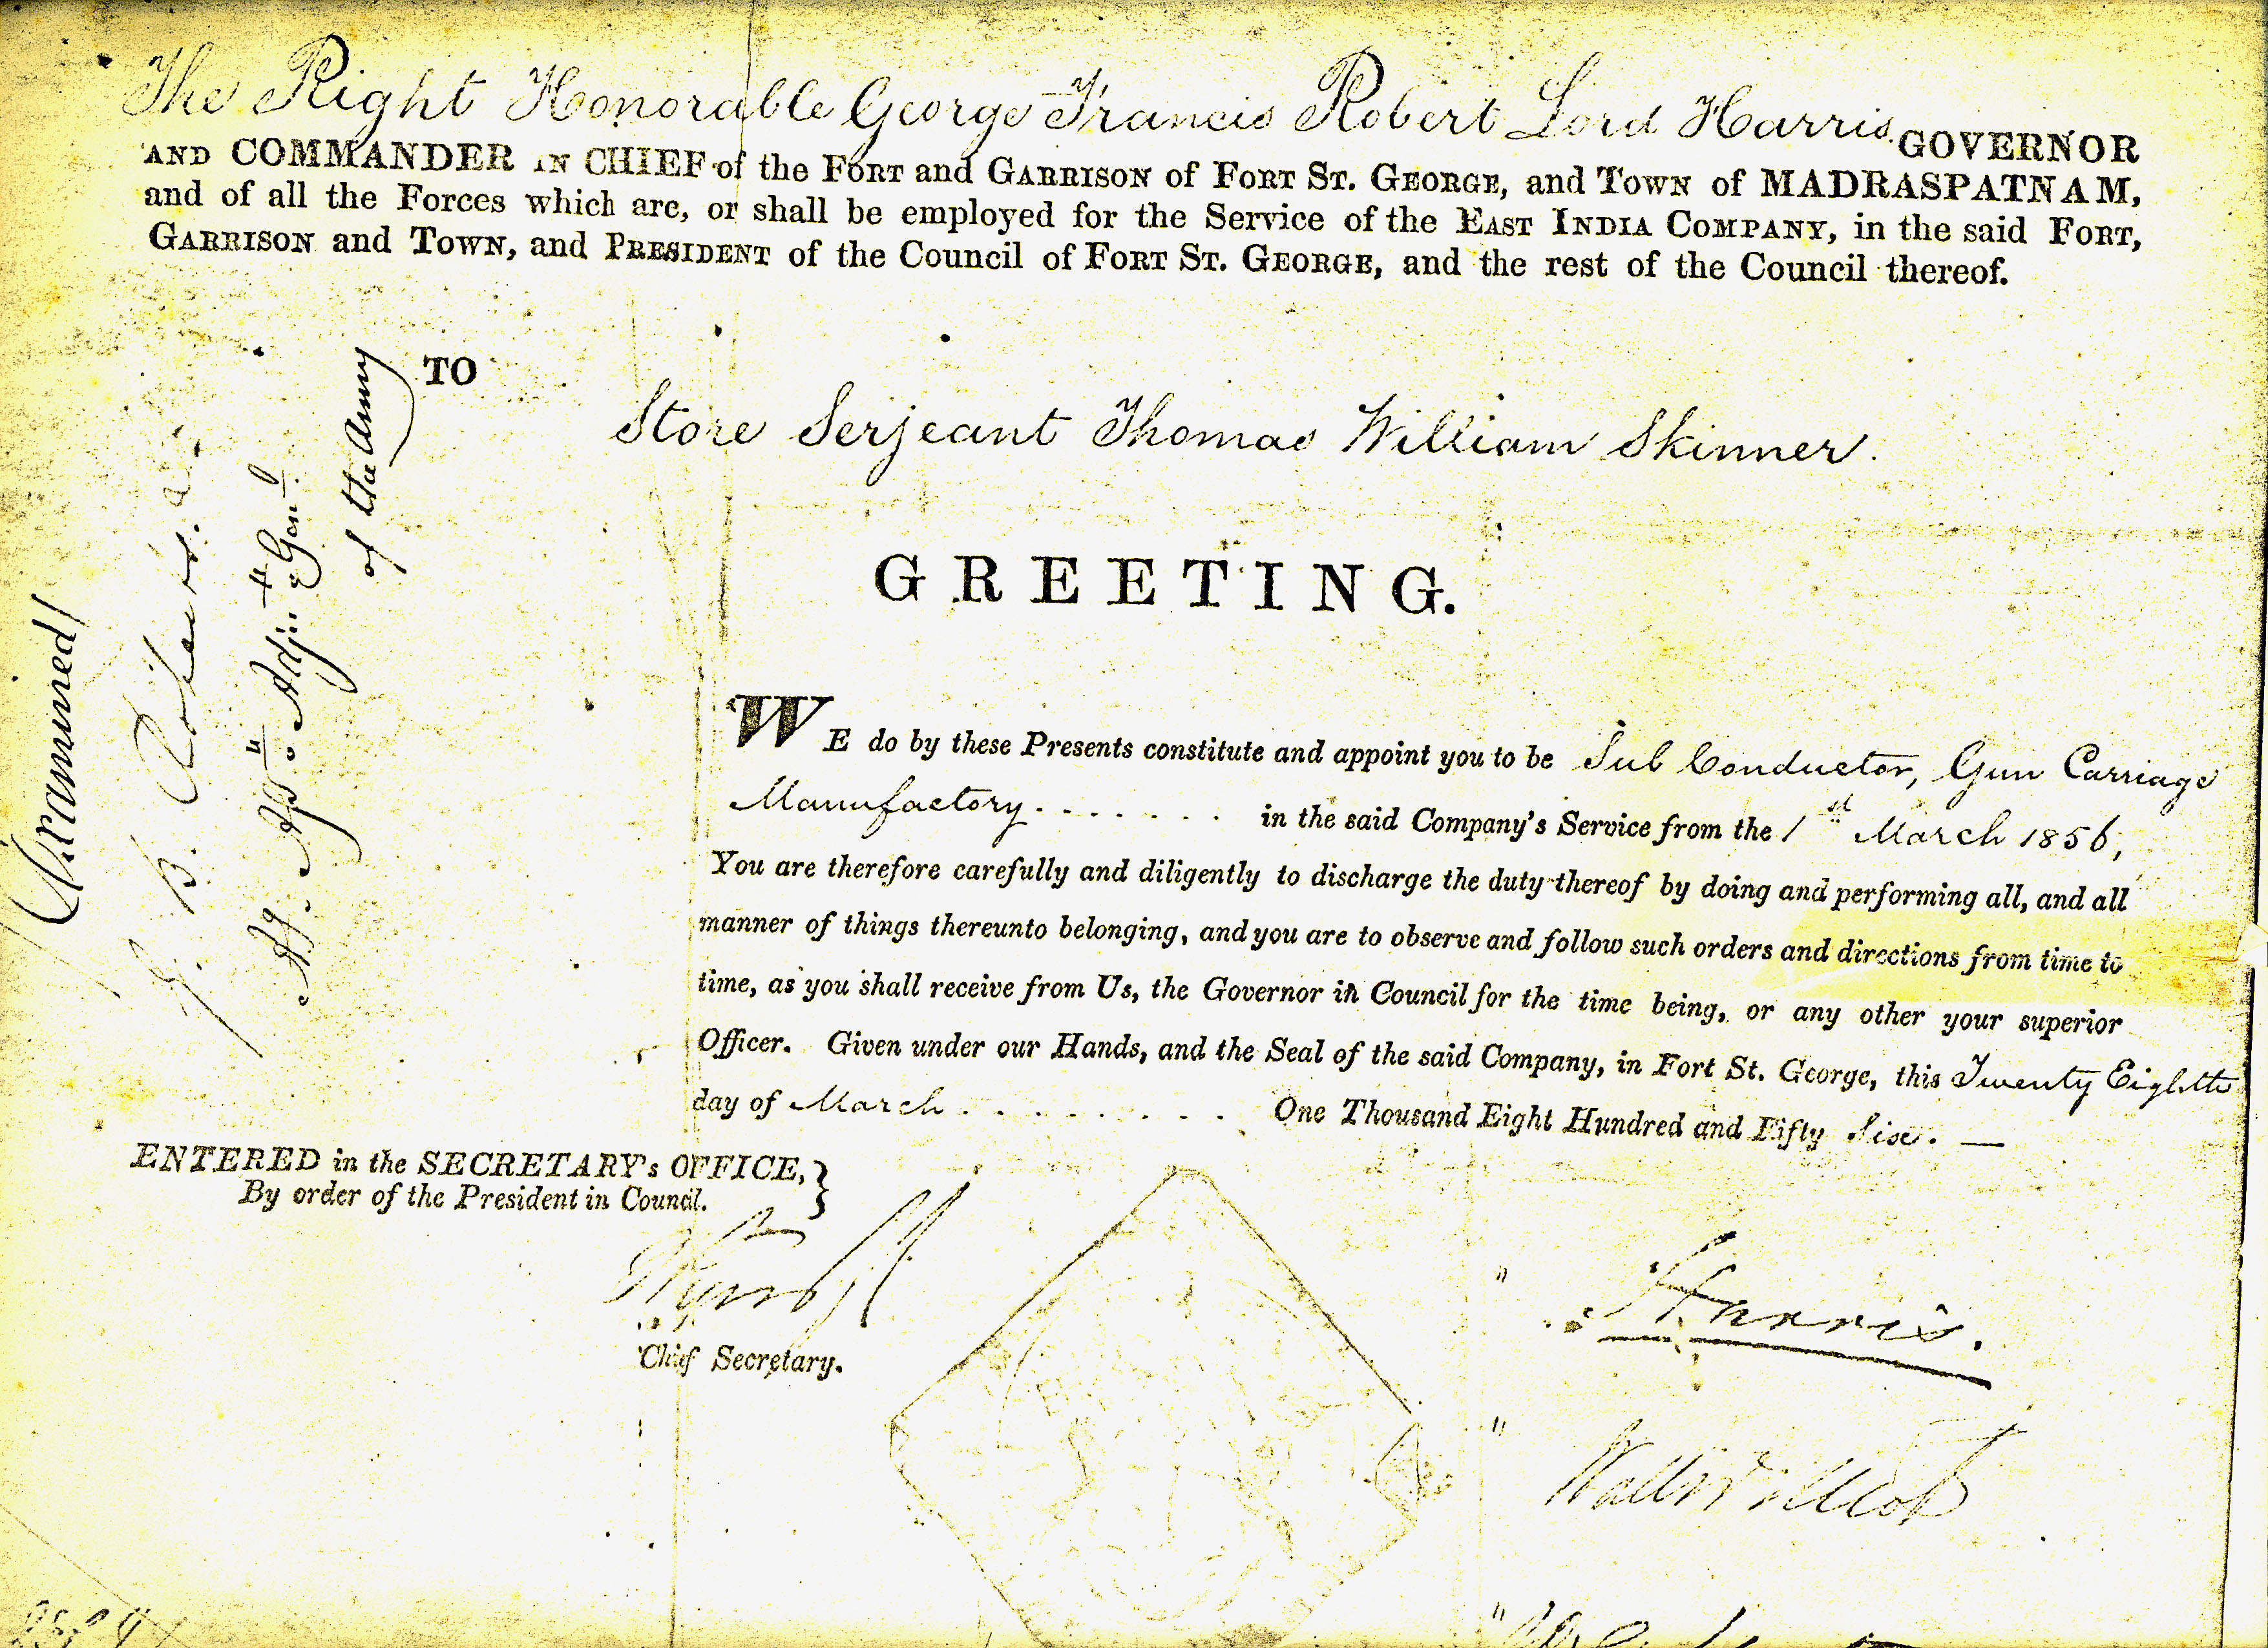 The Right Honorable George Francis Robert Lord Harris GOVERNOR
AND COMMANDER IN CHIEF of the FORT and GARRISON of FORT ST. GEORGE, and TOWN of MADRASPATNAM,
and of all the Forces which are, or shall be employed for the Service of the EAST INDIA COMPANY, in the said FORT,
GARRISON and TOWN, and PRESIDENT of the Council of FORT ST. GEORGE, and the rest of the Council thereof.
TO
Store Serjeant Thomas William Skinner.
GREETING.
WE do by these Presents constitute and appoint you to be Sub Conductor, Gun Carriage
Manufactory . . . . . . . in the said Company's Service from the 1st March 1856,
You are therefore carefully and diligently to discharge the duty thereof by doing and performing all, and all
manner of things thereunto belonging, and you are to observe and follow such orders and directions from time to
time, as you shall receive from Us, the Governor in Council for the time being, or any other your superior
Officer. Given under our Hands, and the Seal of the said Company, in Fort St. George, this Twenty Eighth
day of March . . . . . . . . One Thousand Eight Hundred and Fifty Six. —
ENTERED in the SECRETARY's OFFICE,
By order of the President in Council.
Chief Secretary.
" Harris.
"
"
Examined
of the Army